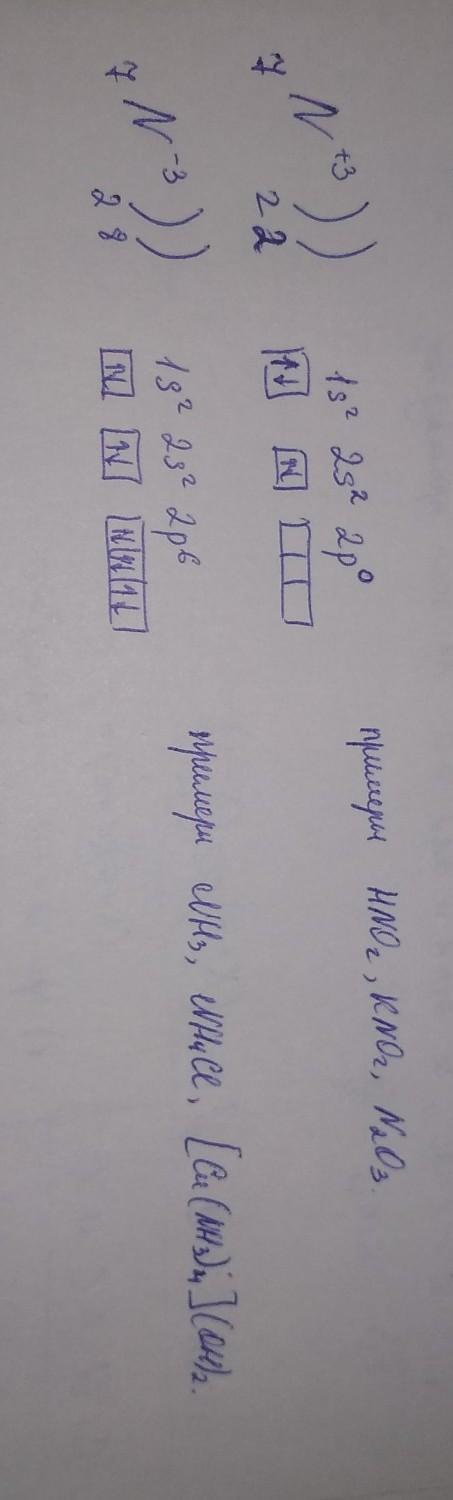 7 N +3 ) ) 1s² 2s² 2p⁰ примеры HNO₂, KNO₂, N₂O₃.
2 2 ↑↓ ↑↓
7 N -3 ) ) 1s² 2s² 2p⁶ примеры NH₃, NH₄Cl, [Cu(NH₃)₄](OH)₂.
2 8 ↑↓ ↑↓ ↑↓ ↑↓ ↑↓